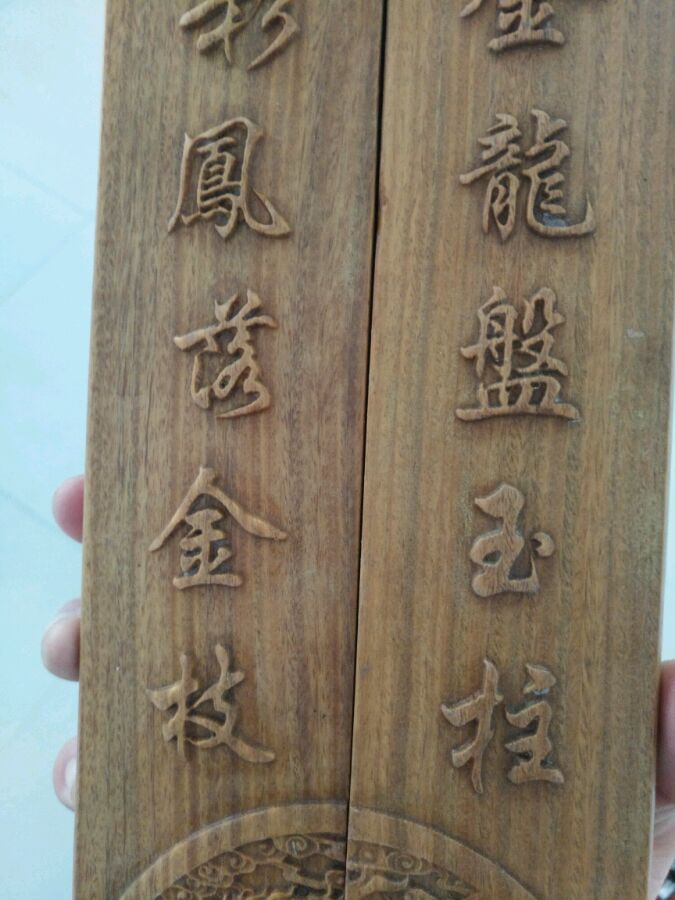 金龍盤玉柱
彩鳳落金枝